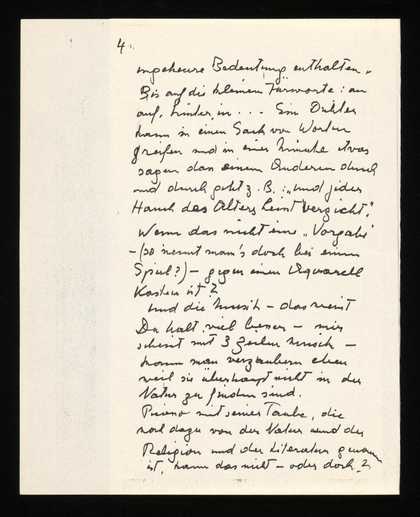 4.
ungeheure Bedeutung enthalten.
Bis auf die kleinen Fürworte: an
auf, hinter, in ... Ein Dichter
kann in einen Sack von Worten
greifen und in einer Minute etwas
sagen das einem Anderen durch
und durch geht z. B.: "und jeder
Hauch des Alters leint Verzicht".
Wenn das nicht eine "Vorgabe"
- (so nennt man's doch bei einem
Spiel?) - gegen einen Aquarell
Kasten ist?
Und die Musik - das weisst
Du halt viel besser - mir
scheint mit 3 Zeilen Musik -
kann man verzaubern eben
weil sie überhaupt nicht in der
Natur zu finden sind.
Picasso mit seiner Taube, die
noch dazu von der Natur und der
Religion und der Literatur genommen
ist, kann das nicht - oder doch?